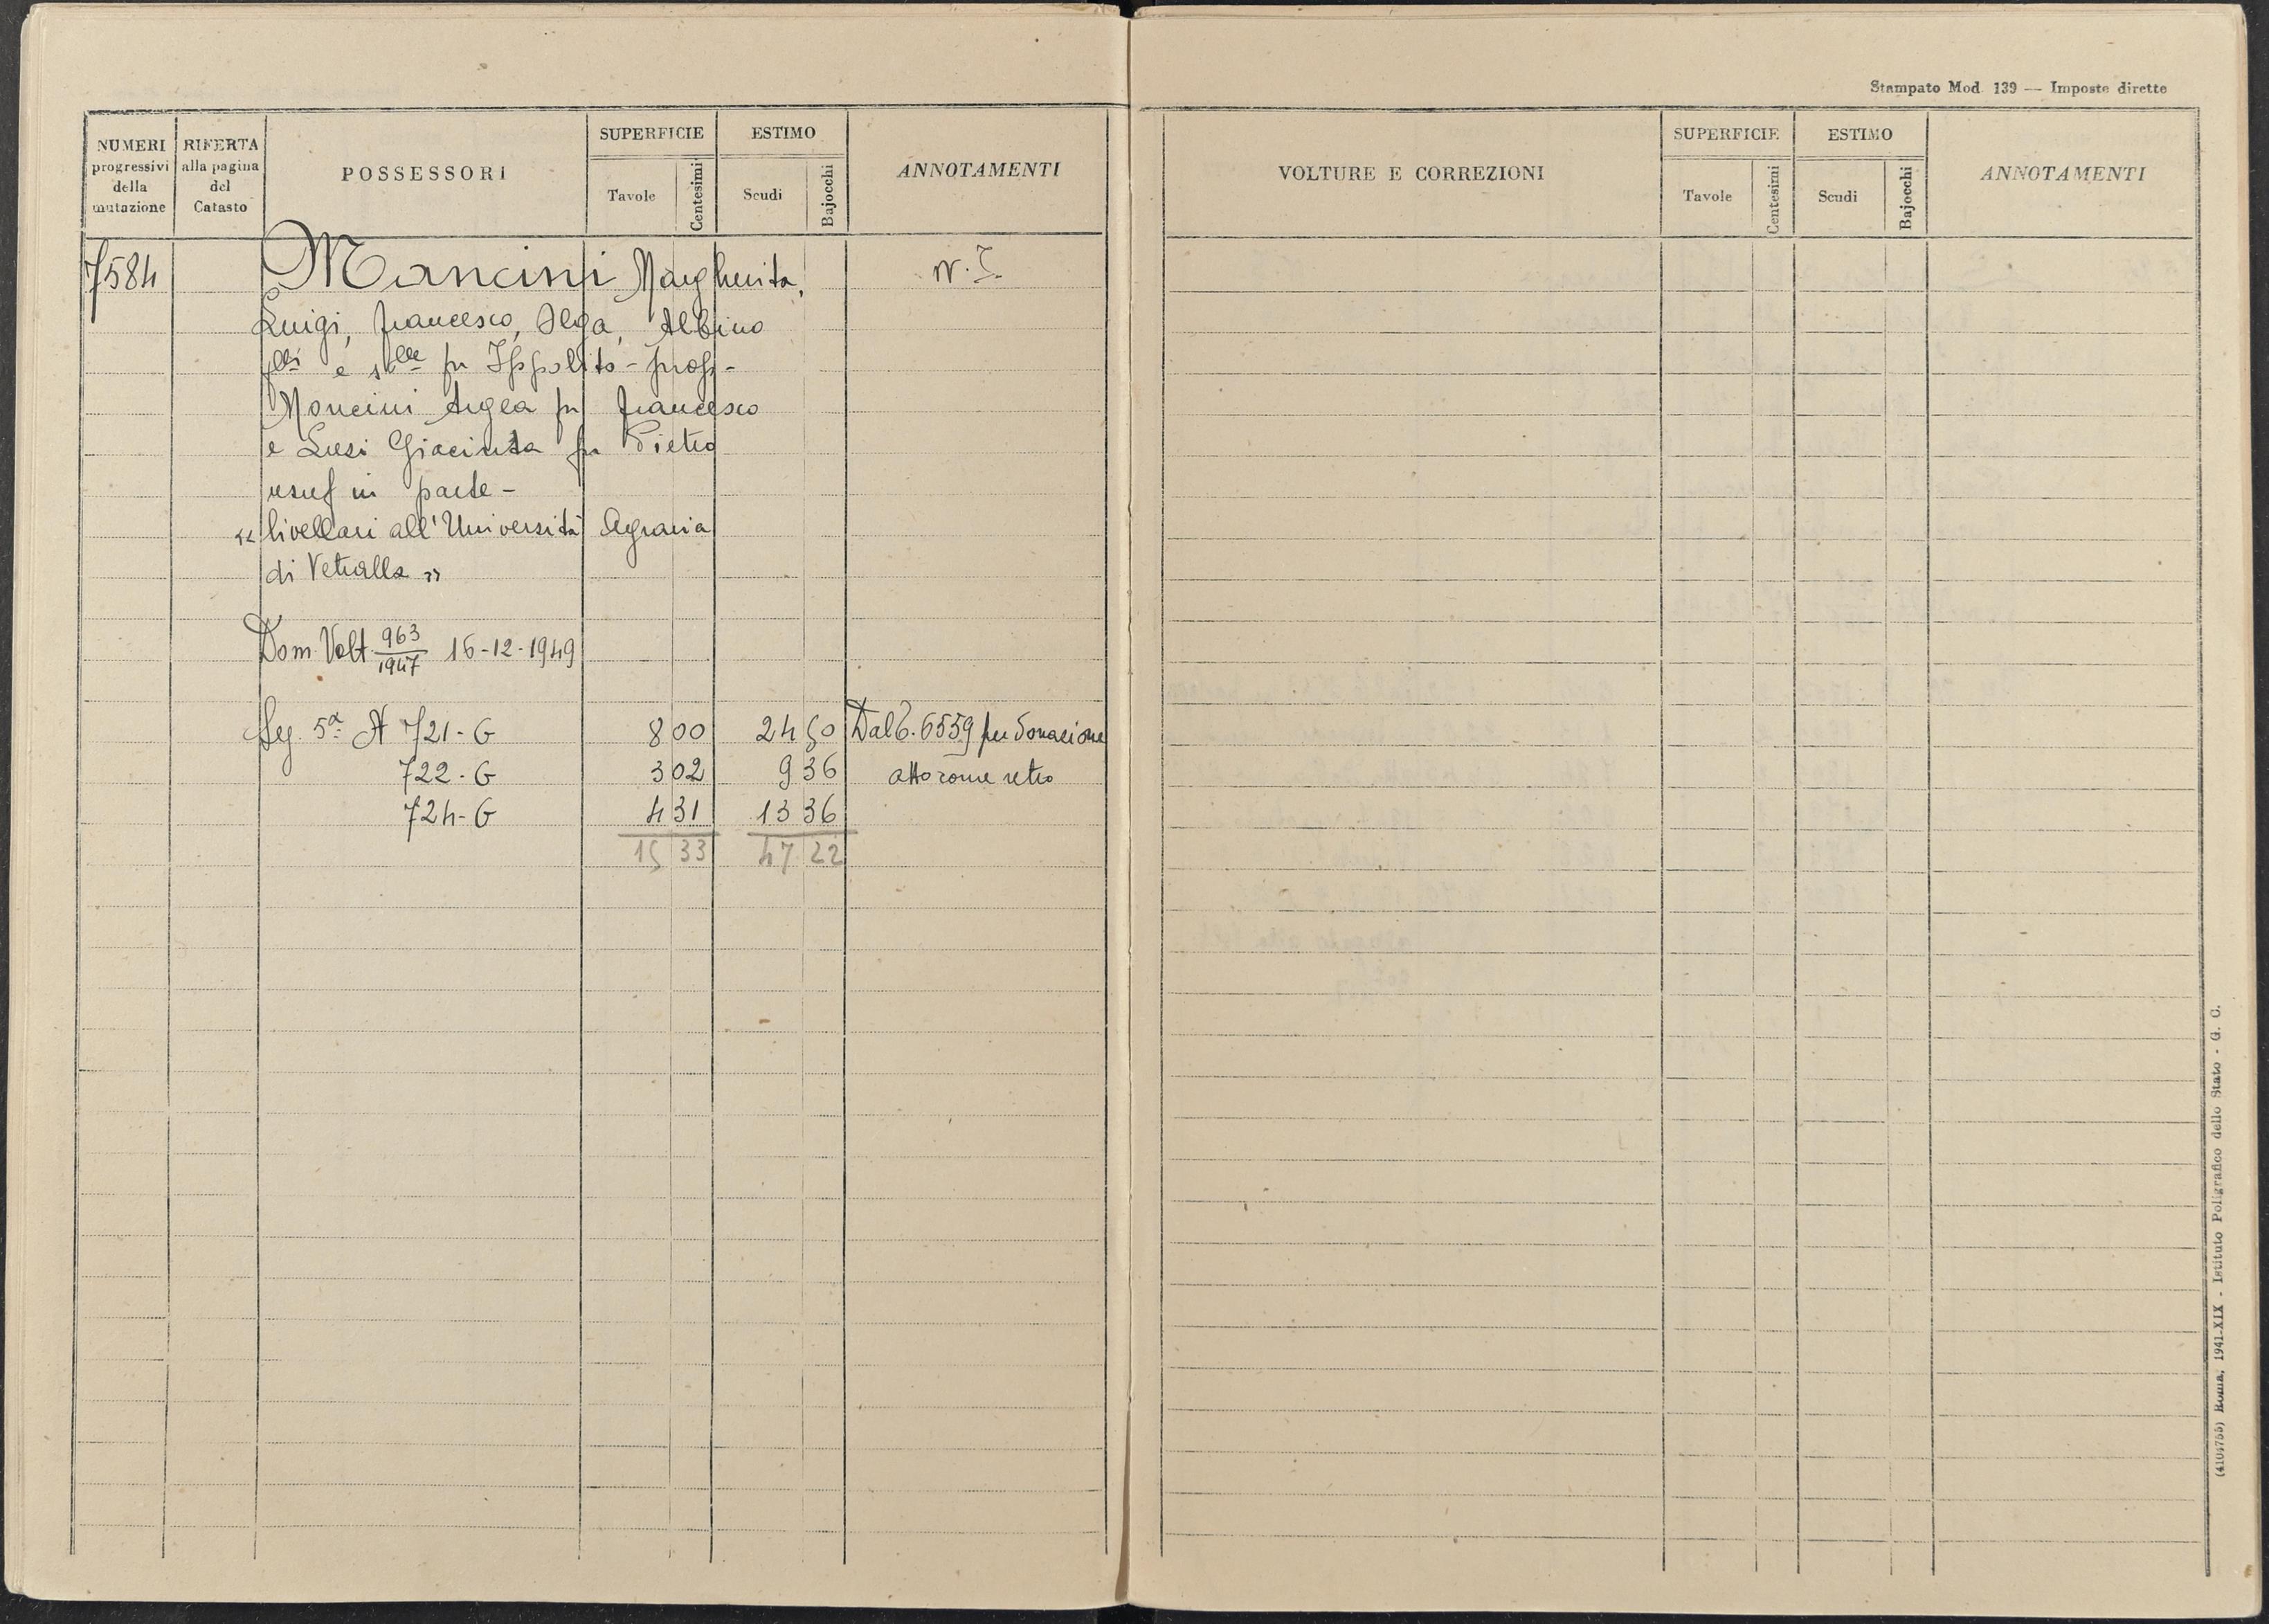 Stampato Mod. 139 — Imposte dirette
NUMERI progressivi della mutazione
RIFERTA alla pagina del Catasto
POSSESSORI
SUPERFICIE
Tavole
Centesimi
ESTIMO
Scudi
Bajocchi
ANNOTAMENTI
VOLTURE E CORREZIONI
SUPERFICIE
Tavole
Centesimi
ESTIMO
Scudi
Bajocchi
ANNOTAMENTI
7584 Mancini Margherita, N. I.
Luigi, Francesco, Alga, Albino
flli e slle fu Ippolito - prop -
Mancini Argea fu Francesco
e Lusi Giacinta fu Pietro
usuf in parte -
"livellari all'Università Agraria
di Vetralla"
Dom. Volt. 963/1947 16-12-1949
Seg. 5ª A 721-G 8 00 24 50 Dal 6559 per Donazione
722-G 3 02 9 36 atto come retro
724-G 4 31 13 36
15 33 47 22
(4104755) Roma, 1941-XIX - Istituto Poligrafico dello Stato - G. C.